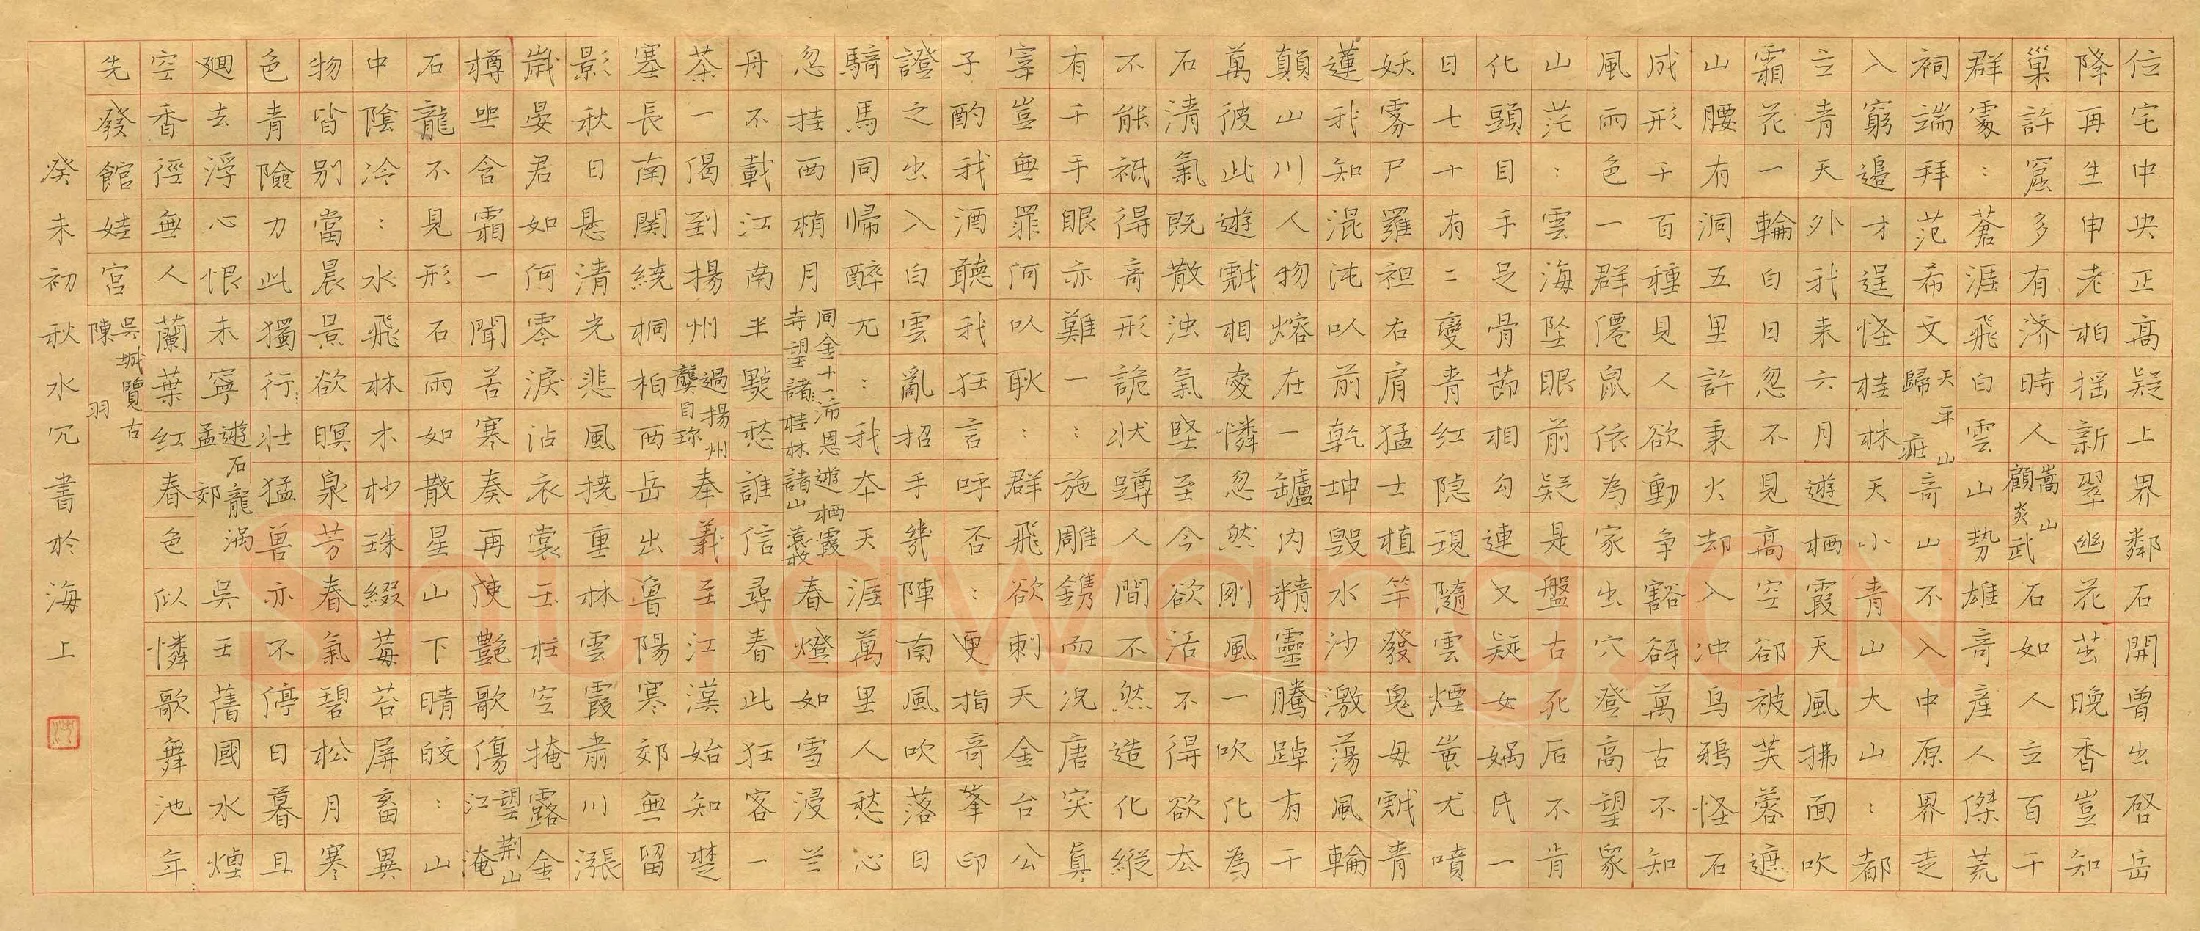 位宅中央正高疑上界鄰石開曾出啓岳
降再生申老柏搖新翠幽花茁晚香豈知
巢許窟多有済時人 嵩山 顧炎武 石如人立百千
群靈:蒼涯飛白雲山勢雄奇產人傑荒
祠端拜范希文 天平山 歸莊 奇山不入中原界走
入窮邊才逞怪桂林天小青山大山:都
立青天外我来六月遊栖霞天風拂面吹
霜花一輪白日忽不見高空卻被芙蓉遮
山腰有洞五里許秉火却入冲烏鴉怪石
成形千百種見人欲動爭谽谺萬古不知
風雨色一群僊鼠依為家出穴登高望衆
山茫:雲海墜眼前疑是盤古死后不肯
化頭目手足骨節相勾連又疑女媧氏一
日七十有二變青紅隐現隨雲煙蚩尤噴
妖霧尸羅袒右肩猛士植竿發鬼母戲青
蓮我知混沌以前乾坤毁水沙激蕩風輪
顛山川人物熔在一鑪内精靈騰踔有千
萬彼此遊戲相變憐忽然剛風一吹化為
石清氣既散浊氣堅至今欲活不得欲去
不能衹得奇形詭状蹲人間不然造化縱
有千手眼亦難一:施雕鐫而况唐突真
宰豈無罪何以耿:群飛欲刺天金台公
子酌我酒聽我狂言呼否:更指奇峯印
證之出入白雲亂招手幾陣南風吹落日
騎馬同帰醉兀:我本天涯萬里人愁心
忽挂西梢月 同金十一沛恩遊栖霞寺望諸桂林諸山 袁枚 春燈如雪浸兰
舟不載江南半點愁誰信尋春此狂客一
茶一偈到揚州 過揚州 龔自珍 奉義至江漢始知楚
塞長南關繞桐柏西岳出魯陽寒郊無留
影秋日懸清光悲風撓重林雲霞肅川漲
歲晏君如何零淚沾衣裳玉柱空掩露金
樽坐含霜一聞苦寒奏再使艷歌傷 望荆山 江淹
石龍不見形石雨如散星山下晴皎:山
中陰冷:水飛林木杪珠綴莓苔屏畜異
物皆别當晨景欲暝泉芳春氣碧松月寒
色青險力此獨行壯猛兽亦不停日暮且
廻去浮心恨未寧 遊石龍渦 孟郊 吳王舊國水煙
空香徑無人蘭葉紅春色似憐歌舞池年:
先發館娃宮 吳城覽古 陳羽
癸未初秋水冗書於海上
Shufawang.CN